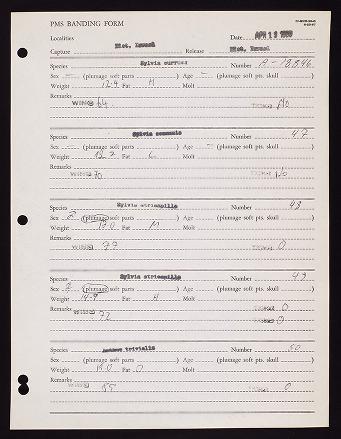 PMS BANDING FORM
Localities Date APR 12
Capture Elat, Israel Release Elat, Israel
Species Sylvia curruca Number A-78546
Sex — (plumage soft parts ) Age — (plumage soft pts. skull )
Weight 12.9 Fat M Molt
Remarks
WING 64 No
Species Sylvia communis Number 47
Sex — (plumage soft parts ) Age — (plumage soft pts. skull )
Weight Fat L Molt
Remarks
WING 70 No
Species Sylvia atricapilla Number 48
Sex (plumage soft parts ) Age (plumage soft pts. skull )
Weight Fat M Molt
Remarks
WING 77 0
Species Sylvia atricapilla Number 49
Sex (plumage soft parts ) Age (plumage soft pts. skull )
Weight 14.9 Fat Molt
Remarks 0
WING 72 0
Species Anthus trivialis Number 50
Sex (plumage soft parts ) Age (plumage soft pts. skull )
Weight Fat 0 Molt
Remarks
WING 85 0